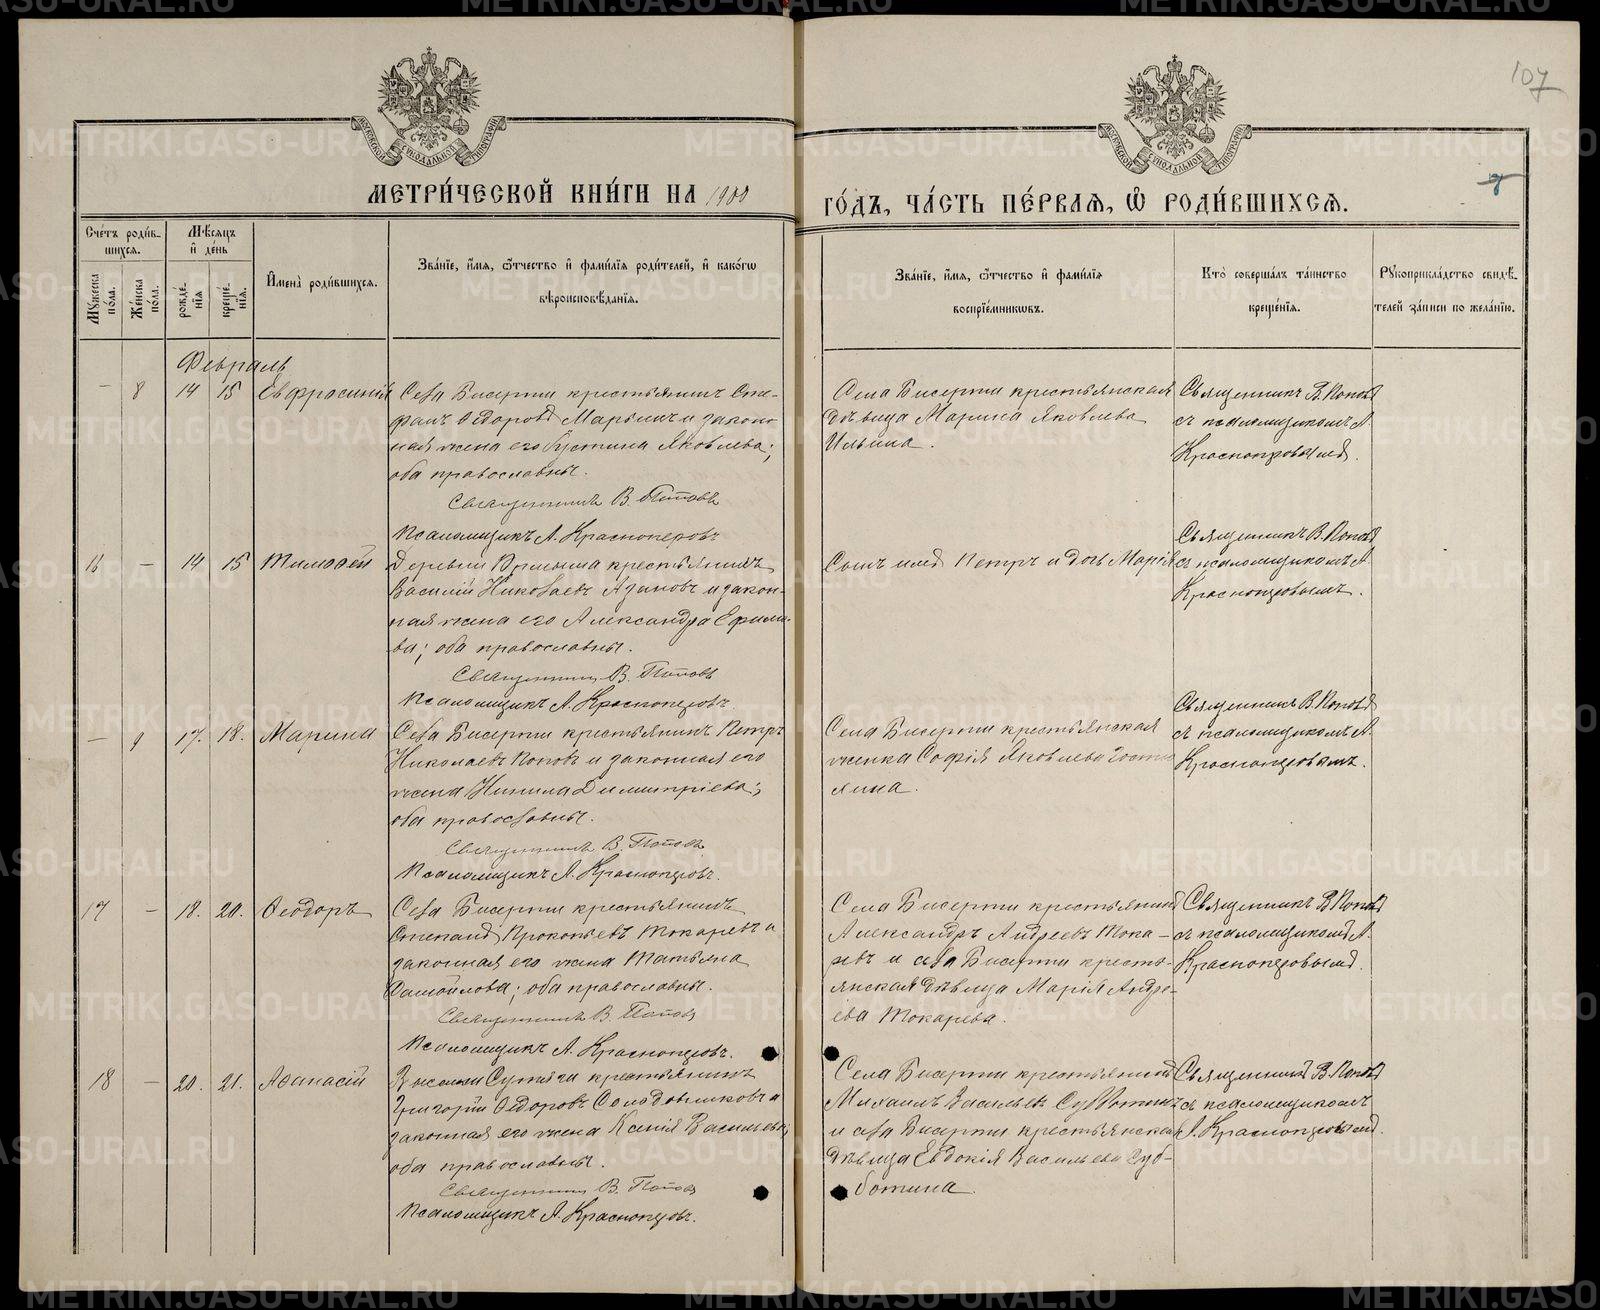 107
МЕТРИ́ЧЕСКОЙ КНИ́ГИ НА 1900
ГО́ДЪ, ЧА́СТЬ ПЕ́РВАЯ, Ѽ РОДИ́ВШИХСЯ.
Сче́тъ роди́в-
шихся.
Мѣ́сяцъ
и҆ де́нь
Мꙋ́жеска
по́ла.
Же́нска
по́ла.
рожде́-
нїя
креще́-
нїя.
И҆мена̀ роди́вшихся.
Зва́нїе, и҆́мя, ѻ҆́тчество и҆ фами́лїя роди́телей, и҆ како́гѡ
вѣроисповѣ́данїя.
Зва́нїе, и҆́мя, ѻ҆́тчество и҆ фами́лїя
воспрїе́мникѡвъ.
Кто̀ соверша́лъ та́инство
креще́нїя.
Рꙋкоприкла́дство свидѣ́-
телей за́писи по жела́нїю.
Февраль
— 8 14 15 Евфросинія
Села Бисерти крестьянинъ Сте-
фанъ Ѳедоровъ Марьинъ и закон-
ная жена его Іустина Яковлева;
оба православны.
Священникъ В. Поповъ
Псаломщикъ А. Красноперовъ
Села Бисерти крестьянская
дѣвица Марина Яковлева
Ильина.
Священникъ В. Поповъ
съ псаломщикомъ А.
Красноперовымъ.
16 — 14 15 Тимофей
Деревни крестьянинъ
Василій Николаевъ Азановъ и закон-
ная жена его Александра Ефимо-
ва; оба православны.
Священникъ В. Поповъ
Псаломщикъ А. Красноперовъ.
Сынъ Петръ и дочь Марія
Священникъ В. Поповъ
съ псаломщикомъ А.
Красноперовымъ.
— 9 17. 18. Марина
Села Бисерти крестьянинъ Петръ
Николаевъ Поповъ и законная его
жена Неонила Димитріева;
оба православны.
Священникъ В. Поповъ
Псаломщикъ А. Красноперовъ.
Села Бисерти крестьянская
женка Софія Яковлева
Священникъ В. Поповъ
съ псаломщикомъ А.
Красноперовымъ.
17 — 18. 20. Ѳеодоръ
Села Бисерти крестьянинъ
Степанъ Прокопьевъ Токаревъ и
законная его жена Татьяна
Самойлова; оба православны.
Священникъ В. Поповъ
Псаломщикъ А. Красноперовъ.
Села Бисерти крестьянинъ
Александръ Андреевъ Тока-
ревъ и села Бисерти кресть-
янская дѣвица Марія Андре-
ева Токарева.
Священникъ В. Поповъ
съ псаломщикомъ А.
Красноперовымъ.
18 — 20. 21. Аѳанасій
Выселка Сутяги крестьянинъ
Григорій Ѳедоровъ Солодовниковъ и
законная его жена Ксенія Васильева;
оба православны.
Священникъ В. Поповъ
Псаломщикъ А. Красноперовъ.
Села Бисерти крестьянинъ
Михаилъ Васильевъ Субботинъ
и села Бисерти крестьянская
дѣвица Евдокія Васильева Суб-
ботина.
Священникъ В. Поповъ
съ псаломщикомъ
А. Красноперовымъ.
METRIKI.GASO-URAL.RU